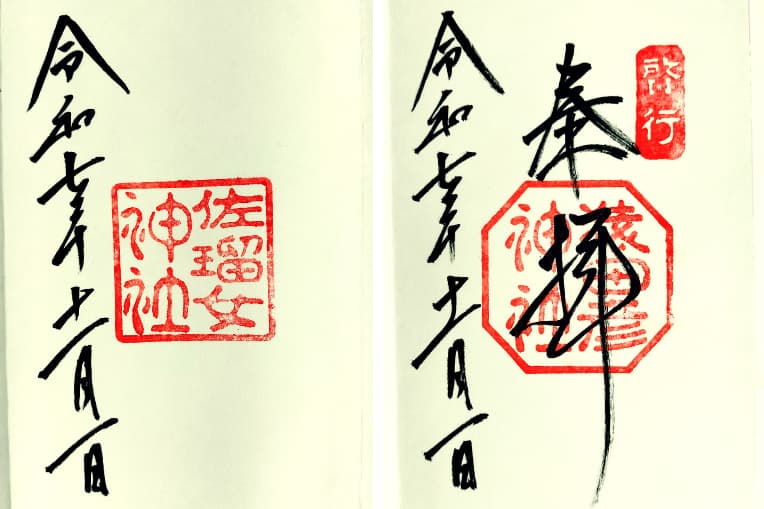 佐瑠女
神社
令和七年十一月一日
啓行
奉拝
猿田彦
神社
令和七年十一月一日